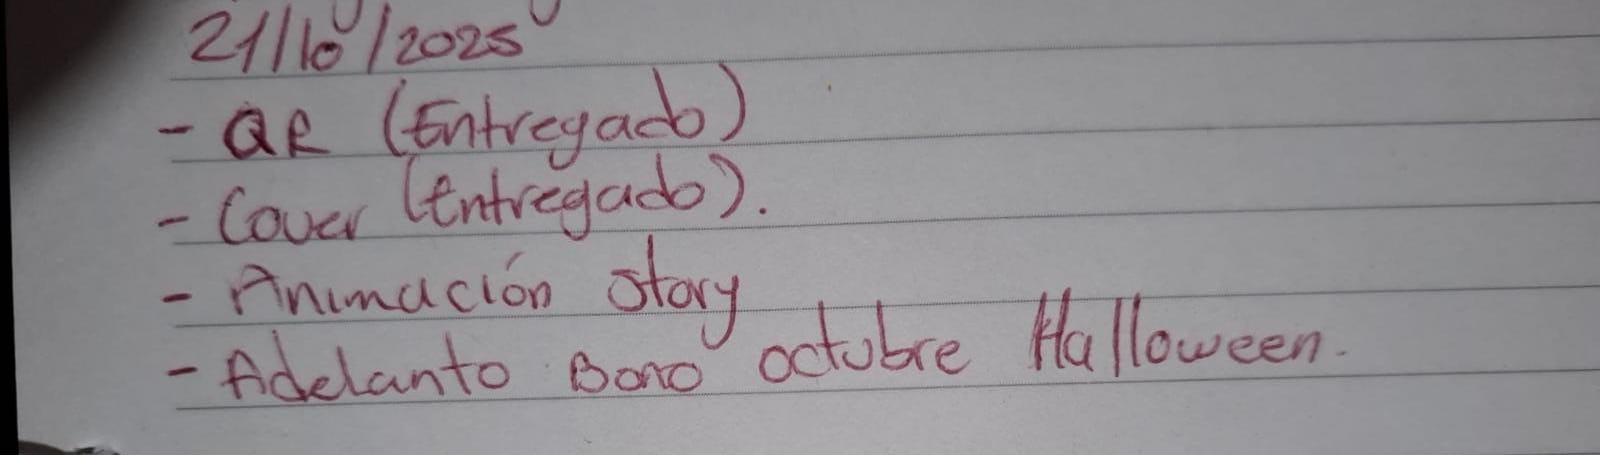 21/10/2025
- QR (Entregado)
- Cover (Entregado).
- Animación story
- Adelanto Bono octubre Halloween.